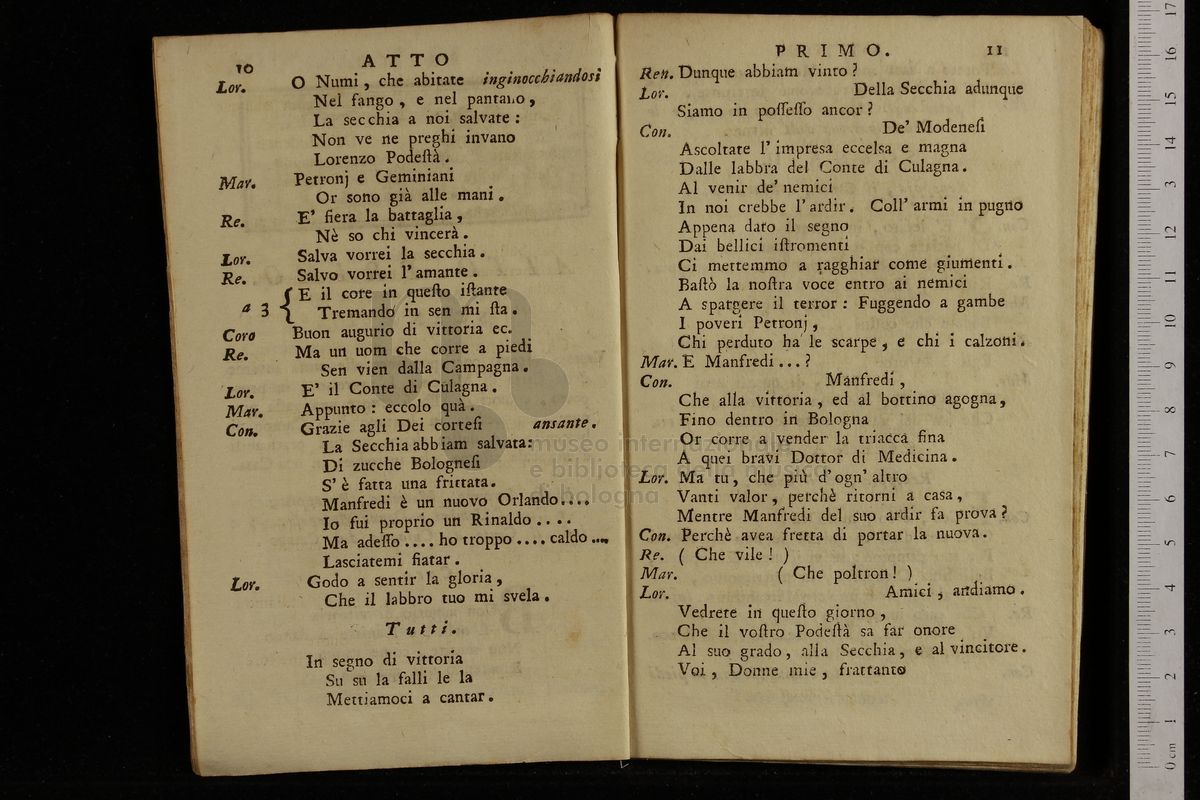 10
ATTO
Lor. O Numi, che abitate inginocchiandosi
Nel fango, e nel pantano,
La secchia a noi salvate:
Non ve ne preghi invano
Lorenzo Podeſtà.
Mar. Petronj e Geminiani
Or sono già alle mani.
Re. E' fiera la battaglia,
Nè so chi vincerà.
Lor. Salva vorrei la secchia.
Re. Salvo vorrei l'amante.
a 3 { E il core in queſto iſtante
Tremando in sen mi ſta.
Coro Buon augurio di vittoria ec.
Re. Ma un uom che corre a piedi
Sen vien dalla Campagna.
Lor. E' il Conte di Culagna.
Mar. Appunto: eccolo quà.
Con. Grazie agli Dei corteſi ansante.
La Secchia abbiam salvata:
Di zucche Bologneſi
S'è fatta una frittata.
Manfredi è un nuovo Orlando....
Io fui proprio un Rinaldo....
Ma adeſſo.... ho troppo.... caldo....
Lasciatemi fiatar.
Lor. Godo a sentir la gloria,
Che il labbro tuo mi svela.
Tutti.
In segno di vittoria
Su su la falli le la
Mettiamoci a cantar.
PRIMO.
11
Ren. Dunque abbiam vinto?
Lor. Della Secchia adunque
Siamo in poſſeſſo ancor?
Con. De' Modeneſi
Ascoltate l'impresa eccelsa e magna
Dalle labbra del Conte di Culagna.
Al venir de' nemici
In noi crebbe l'ardir. Coll' armi in pugno
Appena dato il segno
Dai bellici iſtromenti
Ci mettemmo a ragghiar come giumenti.
Baſtò la noſtra voce entro ai nemici
A spargere il terror: Fuggendo a gambe
I poveri Petronj,
Chi perduto ha le scarpe, e chi i calzoni.
Mar. E Manfredi...?
Con. Manfredi,
Che alla vittoria, ed al bottino agogna,
Fino dentro in Bologna
Or corre a vender la triacca fina
A quei bravi Dottor di Medicina.
Lor. Ma tu, che più d'ogn' altro
Vanti valor, perchè ritorni a casa,
Mentre Manfredi del suo ardir fa prova?
Con. Perchè avea fretta di portar la nuova.
Re. ( Che vile! )
Mar. ( Che poltron! )
Lor. Amici, andiamo.
Vedrete in queſto giorno,
Che il voſtro Podeſtà sa far onore
Al suo grado, alla Secchia, e al vincitore.
Voi, Donne mie, frattanto
museo internazionale
e biblioteca della musica
di bologna
0 cm 1 2 3 4 5 6 7 8 9 10 11 12 13 14 15 16 17